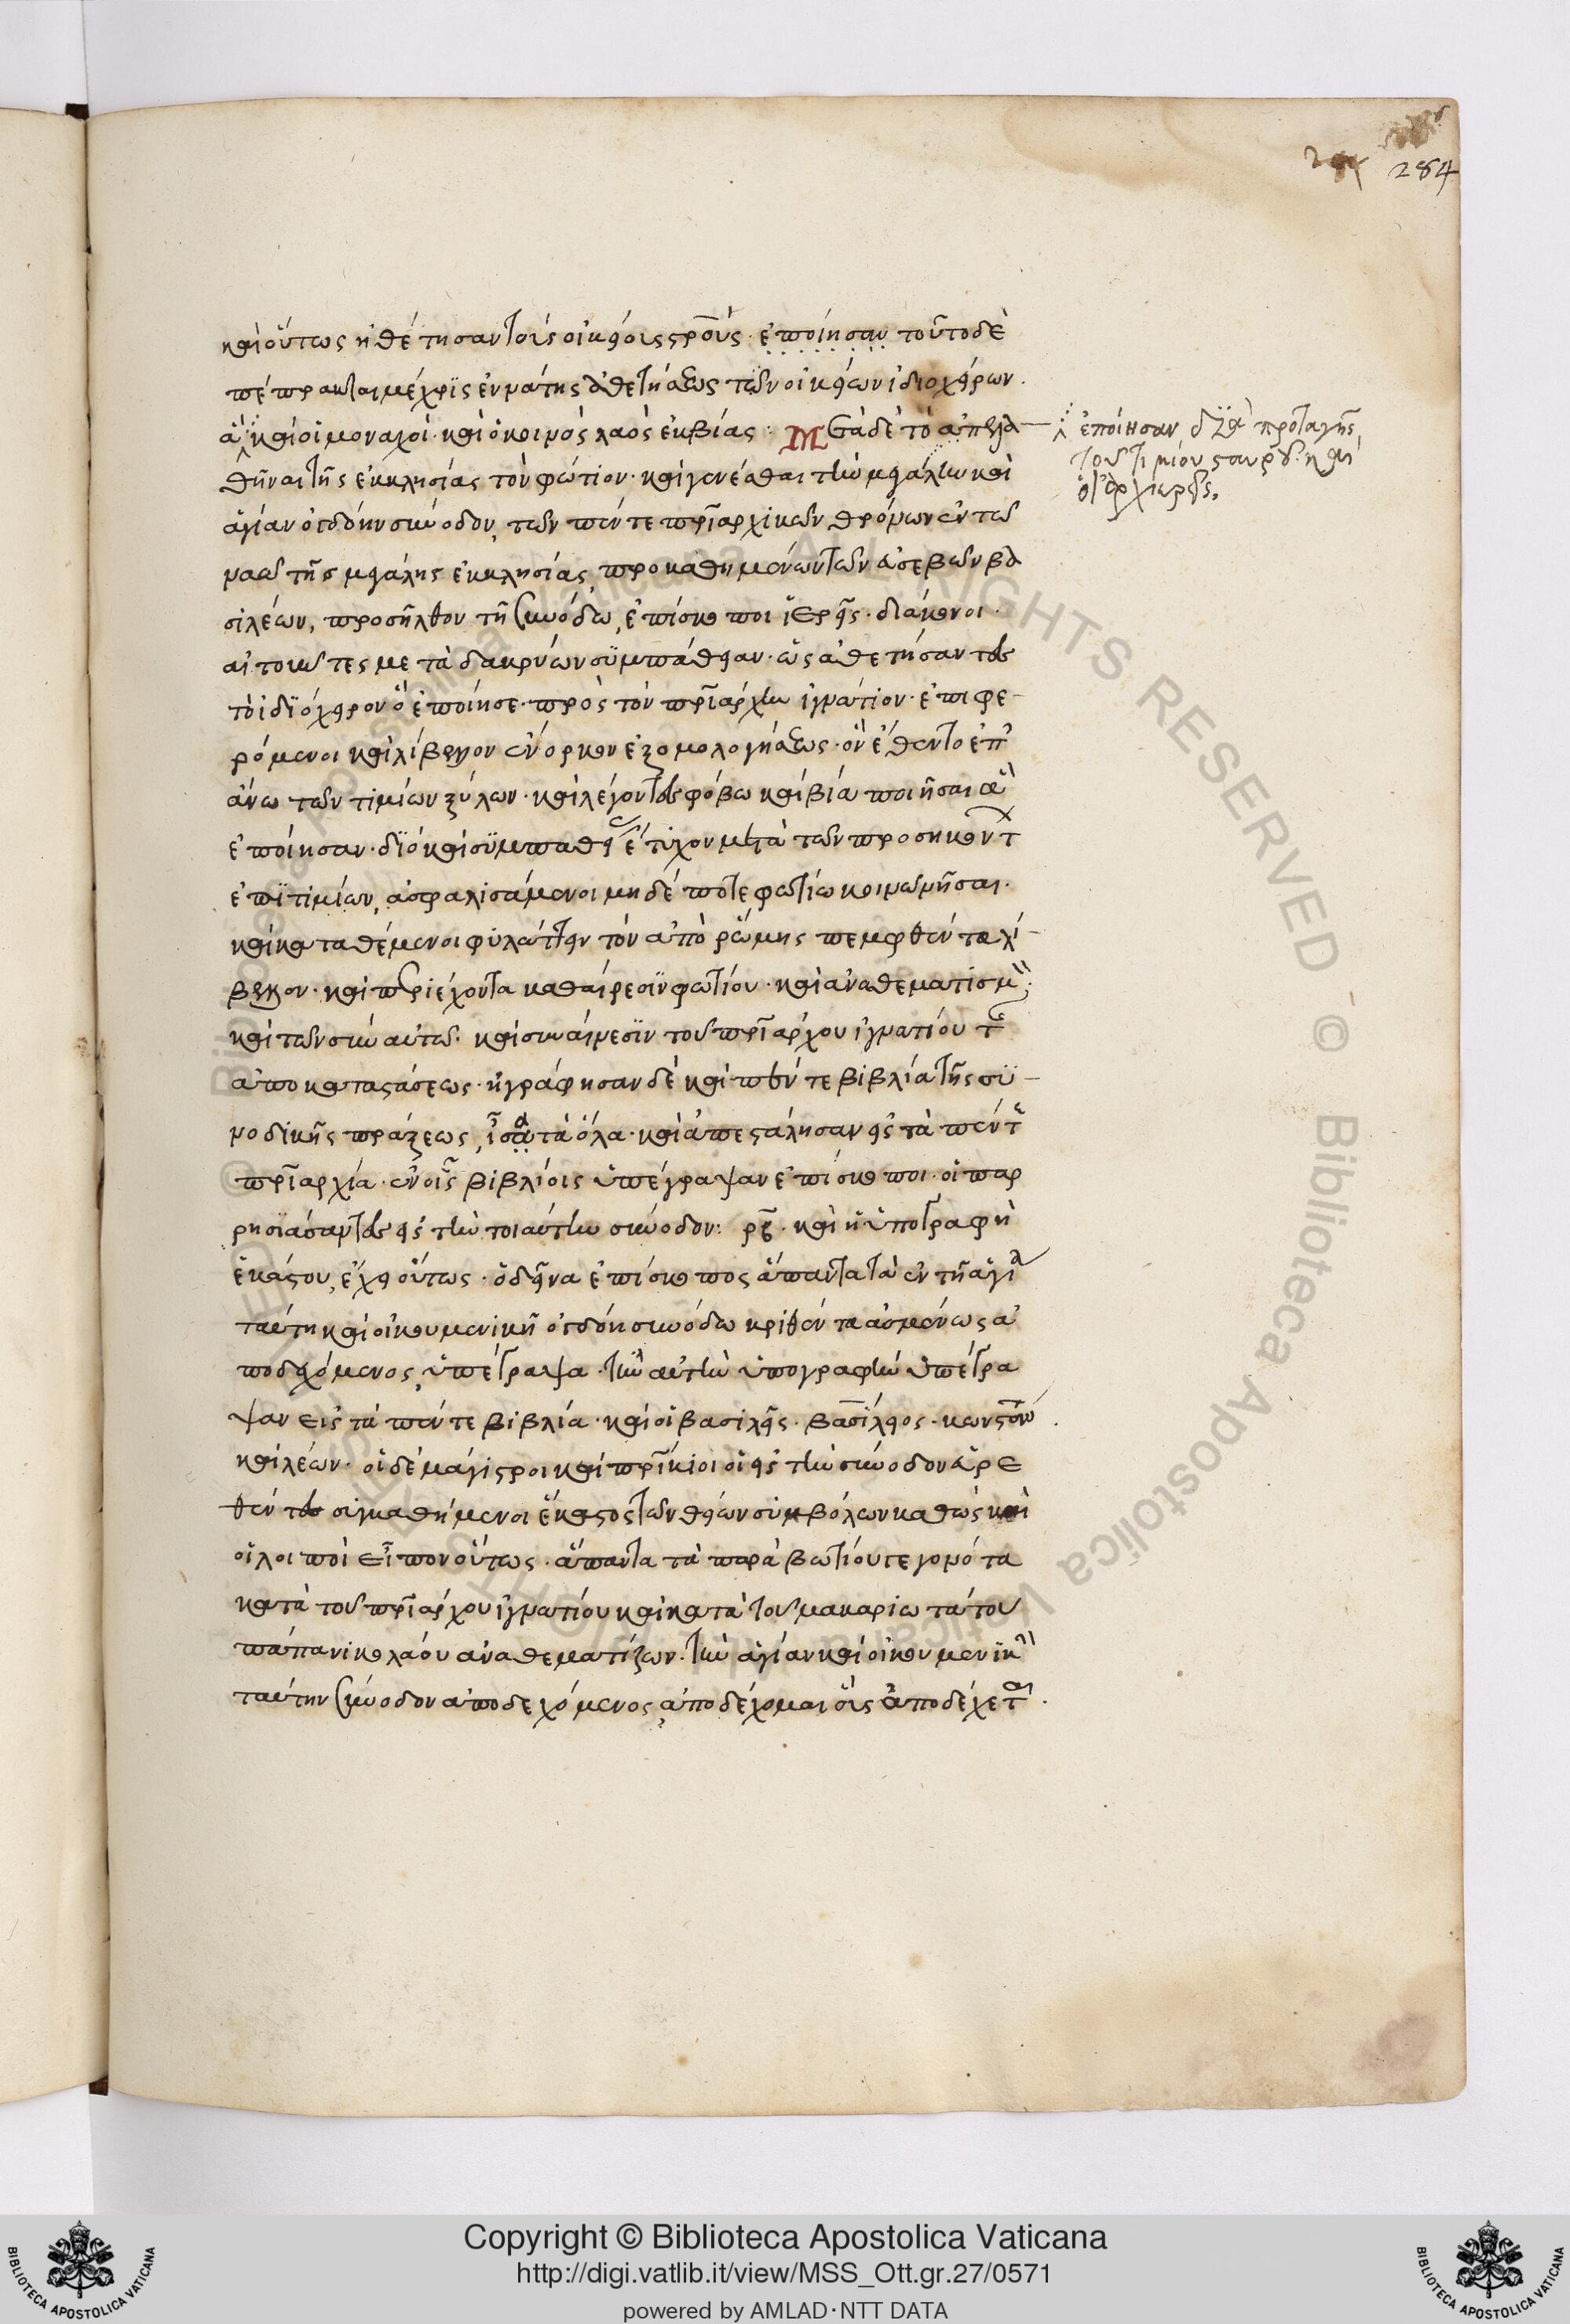 284
καὶ οὕτως ἠθέτησαν τοὺς οἰκείους στροὺς· ἐποίησαν τοῦτο δὲ
πέπρακται μέχρις ἑννάτης ἀθετήσεως τῶν οἰκείων ἰδιοχείρων.
ἃ καὶ οἱ μοναχοὶ· καὶ ὁ κοινὸς λαὸς ἐκ βίας· Μετὰ δὲ τὸ ἀπελα
θῆναι τῆς ἐκκλησίας τὸν φώτιον· καὶ γενέσθαι τὴν μεγάλην καὶ
ἁγίαν ὀγδόην σύνοδον, τῶν πέντε πριαρχικῶν θρόνων ἐν τῶ
ναῶ τῆς μεγάλης ἐκκλησίας, προκαθημένων τῶν εὐσεβῶν βα
σιλέων, προσῆλθον τῆ συνόδω, ἐπίσκοποι ἱερεῖς· διάκονοι·
αἰτοῦντες μετὰ δακρύων συμπάθειαν· ὡς ἀθετήσαντες
τὸ ἰδιόχειρον ὃ ἐποίησε· πρὸς τὸν πριάρχην ἰγνάτιον· ἐπιφε-
ρόμενοι καὶ λίβελλον ἔνορκον ἐξομολογήσεως· ὃν ἔθεντο ἐπ
άνω τῶν τιμίων ξύλων· καὶ λέγοντες φόβω καὶ βία ποιῆσαι ἃ
ἐποίησαν· διὸ καὶ συμπαθείας ἔτυχον μετὰ τῶν προσηκόντ
ἐπιτιμίων, ἀσφαλισάμενοι μηδέποτε φωτίω κοινωνῆσαι.
καὶ καταθέμενοι φυλάττειν τὸν ἀπὸ ῥώμης πεμφθέντα λί-
βελλον· καὶ περιέχοντα καθαίρεσιν φωτίου· καὶ ἀναθεματισμ
καὶ τῶν σὺν αὐτῶ· καὶ συναίνεσιν τοῦ πριάρχου ἰγνατίου τ
ἀποκαταστάσεως· ἠγράφησαν δὲ καὶ πέντε βιβλία τῆς συ-
νοδικῆς πράξεως, ἶσα τὰ ὅλα· καὶ ἀπεστάλησαν εἰς τὰ πέντε
πριαρχία· ἐν οἷς βιβλίοις ὑπέγραψαν ἐπίσκοποι· οἱ παρ
ρησιάσαντες εἰς τὴν τοιαύτην σύνοδον: ρβ· καὶ ἡ ὑπογραφὴ
ἑκάστου, ἔχει οὕτως· ὁ δεῖνα ἐπίσκοπος ἅπαντα τὰ ἐν τῆ ἁγία
ταύτη καὶ οἰκουμενικῆ ὀγδόη συνόδω κριθέντα ἀσμένως ἀ
ποδεχόμενος, ὑπέγραψα· τὴν αὐτὴν ὑπογραφὴν ὑπέγρα
ψαν εἰς τὰ πέντε βιβλία· καὶ οἱ βασιλεῖς· βασίλειος· κωνστῶν.
καὶ λέων· οἱ δὲ μάγιστροι καὶ πρίκιοι οἱ εἰς τὴν σύνοδον εὑρε
θέντες συγκαθήμενοι ἕκαστος τῶν θείων συμβόλων καθὼς καὶ
οἱ λοιποὶ εἶπον οὕτως· ἅπαντα τὰ παρὰ φωτίου γεγονότα
κατὰ τοῦ πριάρχου ἰγνατίου καὶ κατὰ τοῦ μακαριωτάτου
πάπα νικολάου ἀναθεματίζων· τὴν ἁγίαν καὶ οἰκουμενικὴν
ταύτην σύνοδον ἀποδεχόμενος, ἀποδέχομαι οὓς ἀποδέχεται.
ἐποίησαν
τοῦ τιμίου σταυροῦ· καὶ
οἱ ἀρχιερεῖς.
Copyright © Biblioteca Apostolica Vaticana
http://digi.vatlib.it/view/MSS_Ott.gr.27/0571
powered by AMLAD·NTT DATA
BIBLIOTECA APOSTOLICA VATICANA
BIBLIOTECA APOSTOLICA VATICANA